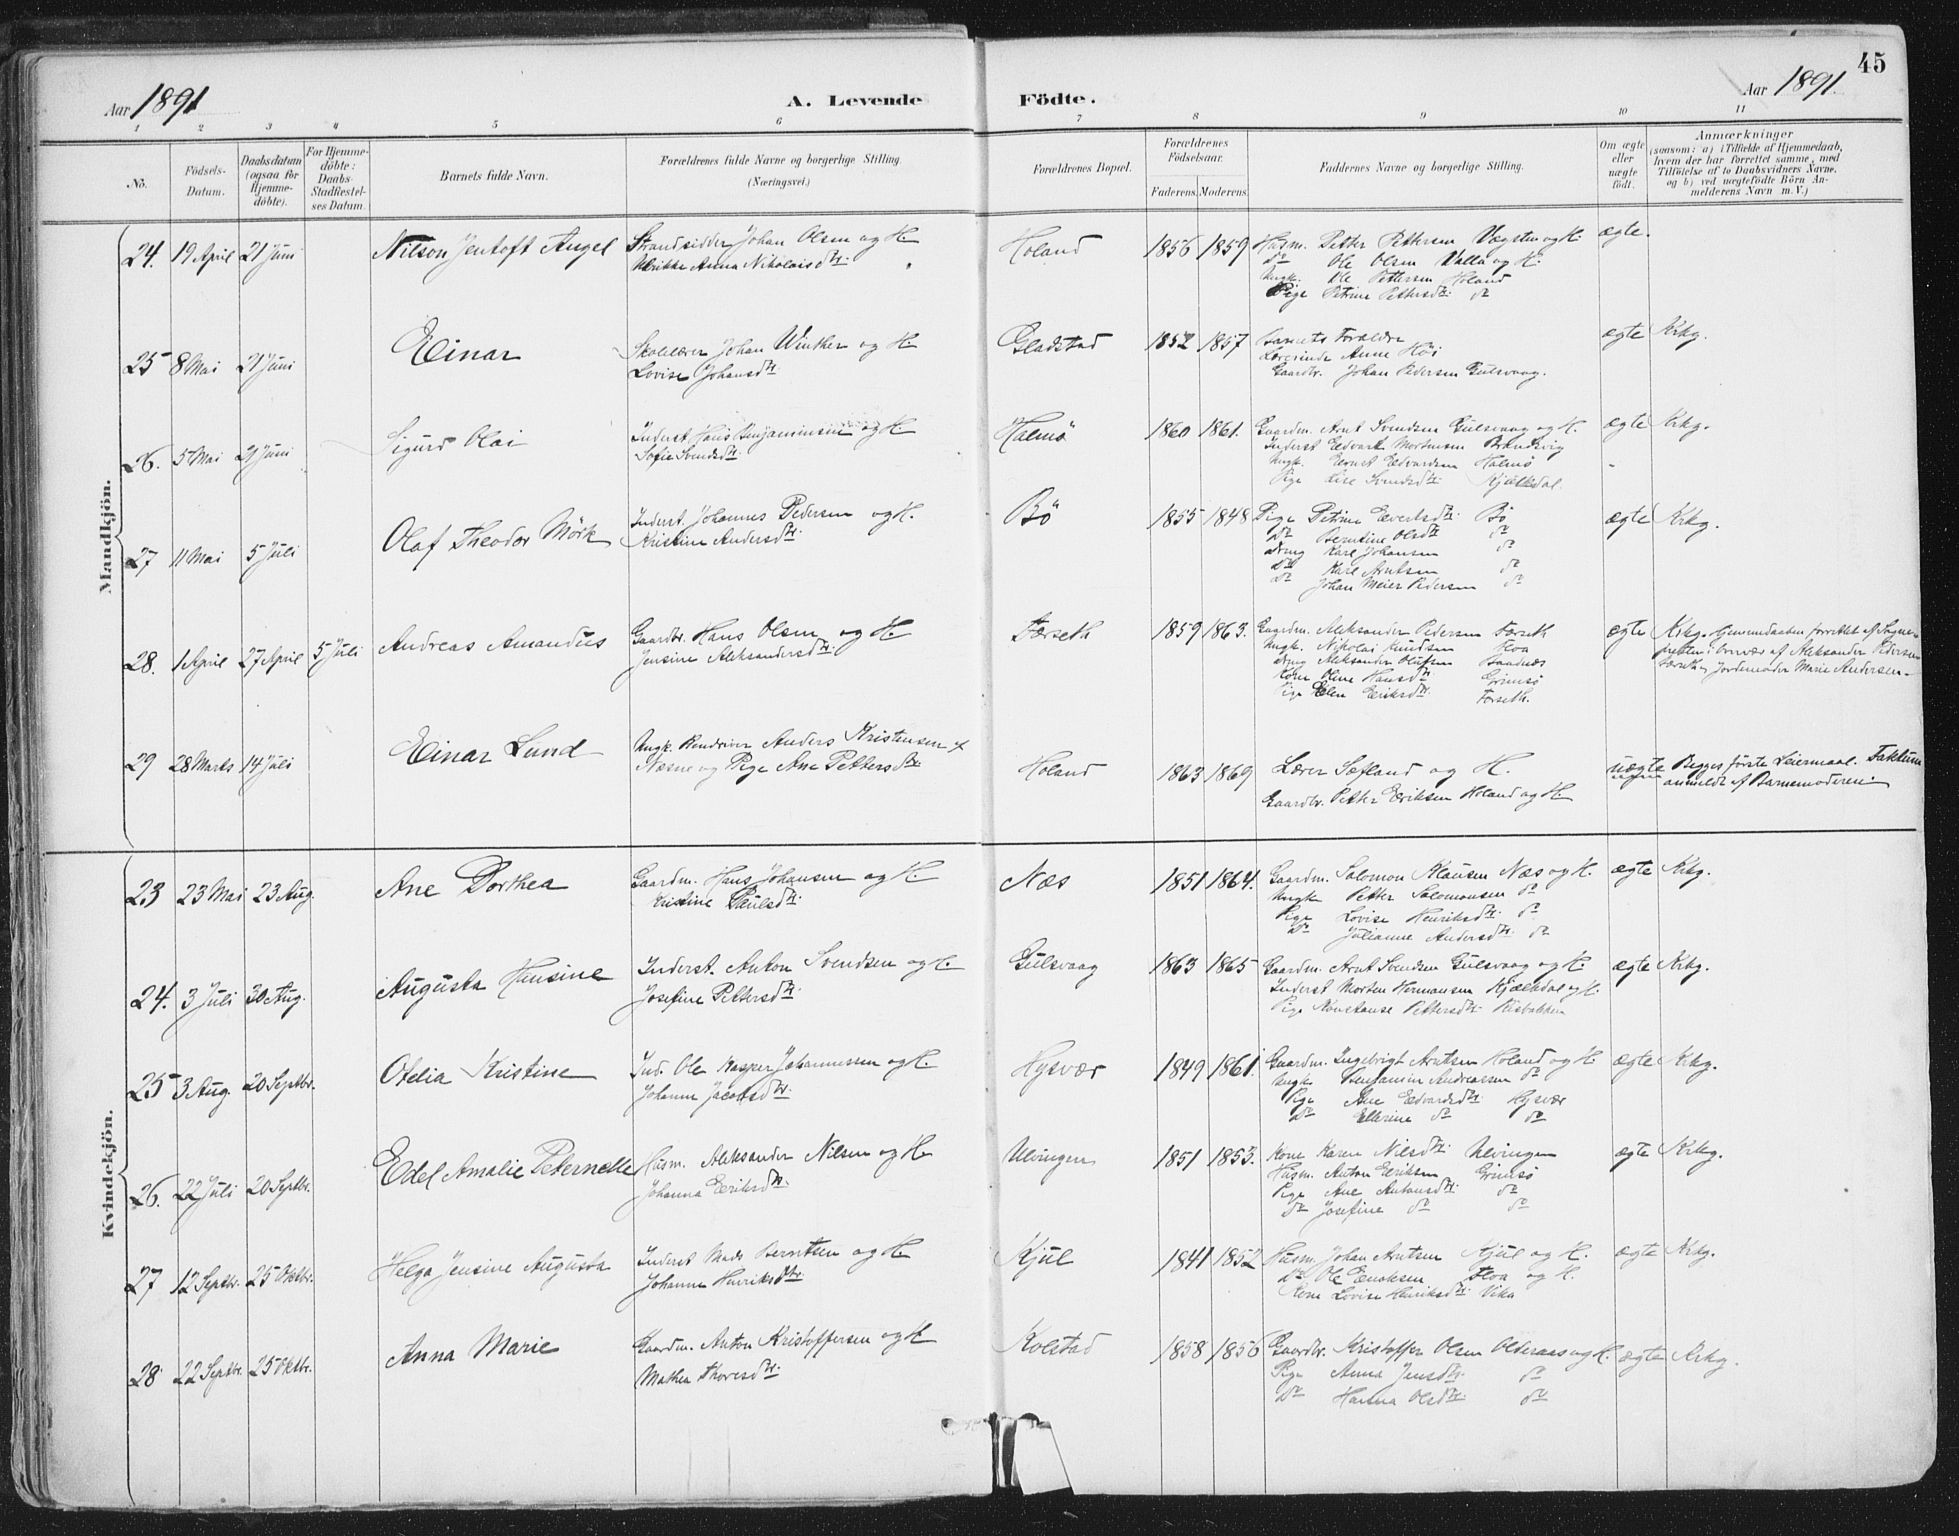 45
Aar 1891 A. Levende Födte. Aar 1891.
1 2 3 4 5 6 7 8 9 10 11
No.
Födsels-
Datum.
Daabsdatum
(ogsaa for
Hjemme-
döbte).
For Hjemme-
döbte:
Daabs-
Stadfæstel-
ses Datum.
Barnets fulde Navn.
Forældrenes fulde Navne og borgerlige Stilling.
(Næringsvei.)
Forældrenes Bopæl.
Forældrenes
Födselsaar.
Faderens. Moderens.
Faddernes Navne og borgerlige Stilling.
Om ægte
eller
uægte
födt.
Anmærkninger
(saasom: a) i Tilfælde af Hjemmedaab,
hvem der har forrettet samme, med
Tilföielse af to Daabsvidners Navne,
og b) ved uægtefödte Börn An-
melderens Navn m. V.)
Mandkjön.
24. 19 April 21 Juni Nilson Jentoft Angel
Strandsidder Johan Olsen og H.
Ulrikke Anna Nikolaisdtr.
Holand 1856 1859
Husm. Petter Pettersen Vægsten og H.
do Ole Olsen Valla og H.
Ungk. Ole Pettersen Holand
Pige Petrine Pettersdtr. do
ægte.
25 8 Mai 21 Juni Einar
Skolelærer Johan Winther og H.
Lovise Johansdtr.
Gladstad 1852 1857
Barnets Forældre
Lærerinde Anne Höi
Gaardbr. Johan Pedersen Gulsvaag.
ægte Krkg.
26. 5 Mai 21 Juni Sigurd Olai
Inderst Hans Benjaminsen og H.
Sofie Svendsdtr.
Halmö 1860 1861.
Gaardm. Arnt Svendsen Gulsvaag og H.
Inderst Edvart Mortensen Brandsvig
Ungk. Ernst Edvardsen Halmö
Pige Lise Svendsdtr. Kjælkdal.
ægte Krkg.
27 11 Mai 5 Juli Olaf Theodor Mörk
Inderst. Johannes Pedersen og H.
Kristine Andersdtr.
Bö 1855 1848
Pige Petrine Evertsdtr. Bö
do Berntine Olsdtr. do
Dreng Karl Johansen do
do Karl Arntsen do
do Johan Meier Pedersen do
ægte Krkg.
28. 1 April 27 April 5 Juli Andreas Amandus
Gaardbr. Hans Olsen og H.
Jensine Aleksandersdtr.
Forseth 1859 1863.
Gaardm. Aleksander Pedersen Forseth
Ungk. Nikolai Knudsen Floa
Dreng Aleksander Olufsen
Kone Oline Hansdtr. Grimsö
Pige Elen Eriksdtr. Forseth.
ægte Krkg. Hjemmedaaben forrettet af Sogne-
presten i Overvær af Aleksander Pedersen
Forseth og Jordemoder Marie Andersen.
29 28 Marts 14 Juli Einar Lund
Ungk. Anders Kristensen af
Næsne og Pige Ane Pettersdtr.
Holand 1863 1869
Lærer Sæfland og H.
Gaardbr. Petter Eriksen Holand og H.
uægte Begges förste Leiermaal. Faktum
anmeldt af Barnemoderen.
Kvindekjön.
23 23 Mai 23 Aug. Ane Dorthea
Gaardm. Hans Johansen og H.
Kristine Paulsdtr.
Næs 1851 1864.
Gaardm. Salomon Klausen Næs og H.
Ungk Petter Salomonsen do
Pige Lovise Henriksdtr. do
do Julianne Andersdtr. do
ægte Krkg.
24. 3 Juli 30 Aug. Augusta Hansine
Inderst. Anton Svendsen og H.
Josefine Pettersdtr.
Gulsvaag 1863 1865
Gaardm. Arnt Svendsen Gulsvaag og H.
Inderst Morten Hermansen Kjælkdal og H.
Pige Konstanse Pettersdtr. Risbakken
ægte Krkg.
25 3 Aug. 20 Septbr. Otelia Kristine
Ind. Ole Kasper Johannessen og H.
Johanne Jacobsdtr.
Hysvær 1849 1861.
Gaardm. Ingebrigt Arntsen Holand og H.
Ungk. Benjamin Andreassen do
Pige Ane Edvardsdtr. Hysvær
do Ellerine do do
ægte Krkg.
26. 22 Juli 20 Septbr. Edel Amalie Peternelle
Husm. Aleksander Nilsen og H.
Johanna Eriksdtr.
Ulvingen 1851 1853.
Kone Karen Nilsdtr. Ulvingen
Husm. Anton Eriksen Grimsö
Pige Ane Antonsdtr. do
do Josefine do do
ægte Krkg.
27 12 Septbr. 25 Oktbr. Helga Jensine Augusta
Inderst Mads Berntsen og H.
Johanne Henriksdtr.
Kjul 1841 1852
Husm. Johan Arntsen Kjul og H.
do Ole Enoksen Floa og H.
Kone Lovise Henriksdtr. Vika
ægte Krkg.
28 22 Septbr. 25 Oktbr. Anna Marie
Gaardm. Anton Kristoffersen og H
Mathea Thoresdtr.
Kolstad 1858 1856
Gaardbr. Kristoffer Olsen Olderaas og H.
Pige Anna Jensdtr. do
do Hanna Olsdtr. do
ægte Krkg.